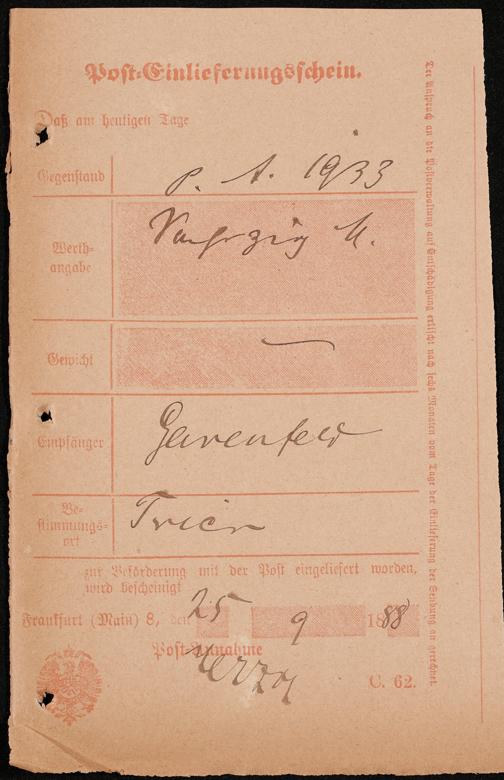 Post-Einlieferungsschein.
Daß am heutigen Tage
Gegenstand
p. A. 1933
Werth-
angabe
M.
Gewicht
Empfänger
Garenfeld
Be-
stimmungs-
ort
Trier
zur Beförderung mit der Post eingeliefert worden,
wird bescheinigt
Frankfurt (Main) 8, den 25 9 1888
Post-Annahme
C. 62.
Der Anspruch an die Postverwaltung auf Entschädigung erlischt nach sechs Monaten vom Tage der Einlieferung der Sendung an gerechnet.